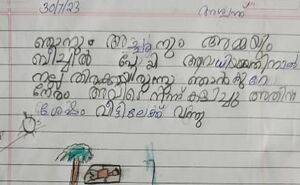 30/7/23
ഞാനും അച്ഛനും അമ്മയും
ബീച്ചിൽ പോയി അവധിയായതിനാൽ
നല്ല തിരക്കായിരുന്നു ഞാൻ കുറേ
നേരം അവിടെ നിന്ന് കളിച്ചു അതിന്
ശേഷം വീട്ടിലേക്ക് വന്നു